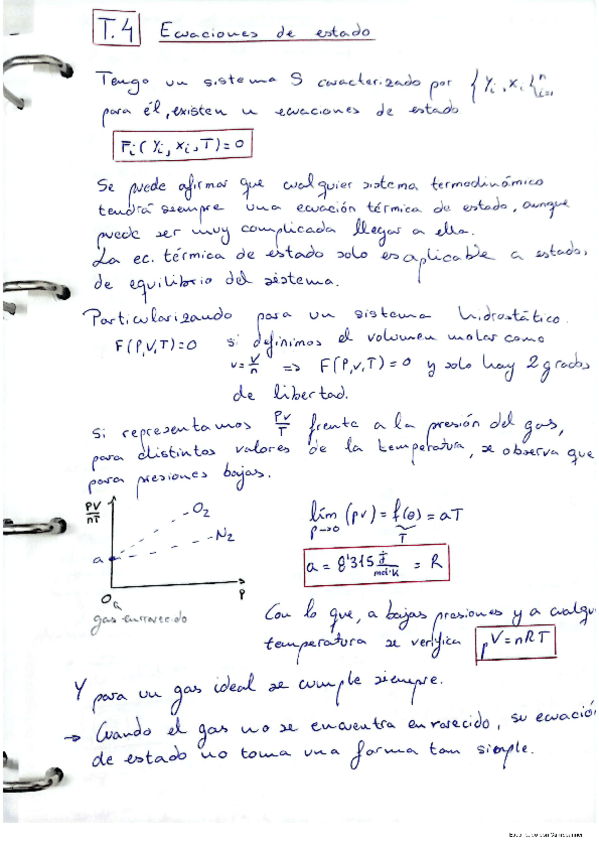 T.4 Ecuaciones de estado
Tengo un sistema S caracterizado por {Yi, Xi}ⁿi=1
para él, existen n ecuaciones de estado
Fi(Yi, Xi, T) = 0
Se puede afirmar que cualquier sistema termodinámico
tendrá siempre una ecuación térmica de estado, aunque
puede ser muy complicada llegar a ella.
La ec. térmica de estado solo es aplicable a estados
de equilibrio del sistema.
Particularizando para un sistema hidrostático.
F(P,V,T)=0 si definimos el volumen molar como
v = V/n => F(P,v,T) = 0 y solo hay 2 grados
de libertad.
Si representamos Pv/T frente a la presión del gas,
para distintos valores de la temperatura, se observa que
para presiones bajas.
PV/nT
O2
N2
a
P
O
a
gas enrarecido
lím p→0 (pv) = f(θ) = aT
T
a = 8'315 J/mol·K = R
Con lo que, a bajas presiones y a cualqu
temperatura se verifica pV = nRT
Y para un gas ideal se cumple siempre.
→ Cuando el gas no se encuentra enrarecido, su ecuación
de estado no toma una forma tan simple.